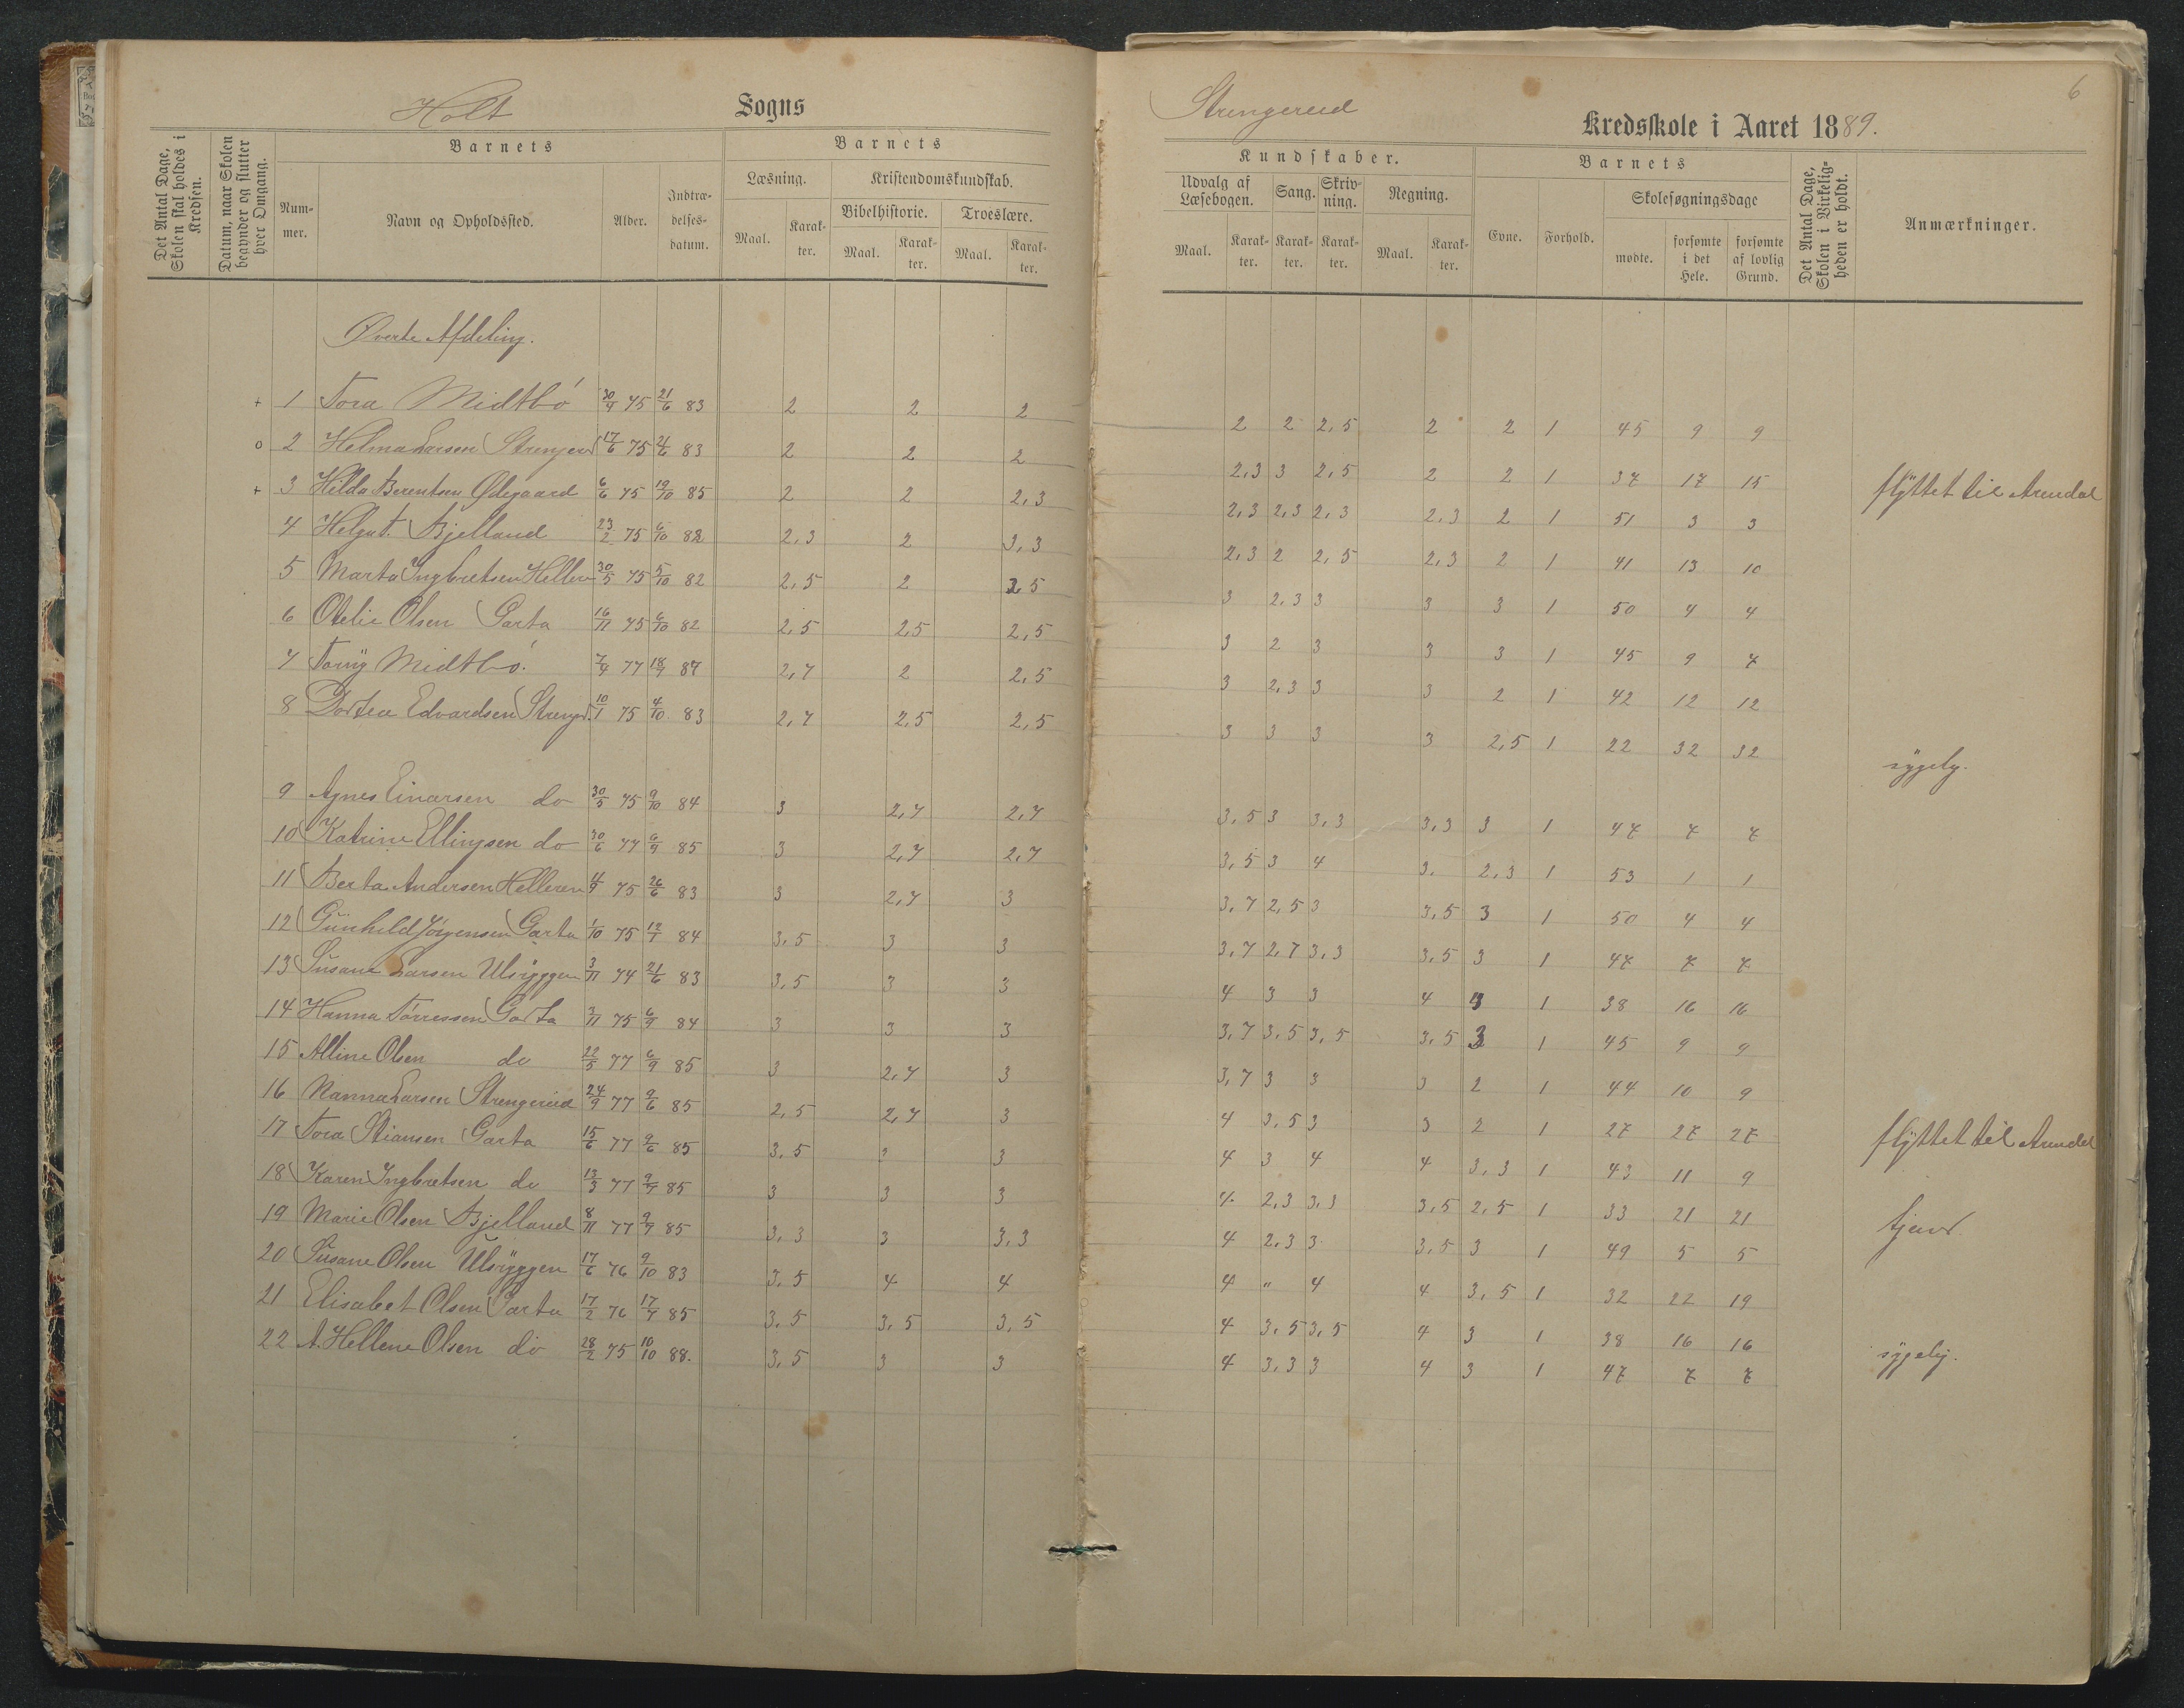 Holt Sogns
Strengereid Kredsskole i Aaret 1889.
6
Det Antal Dage, Skolen skal holdes i Kredsen.
Datum, naar Skolen begynder og slutter hver Omgang.
Barnets
Nummer.
Navn og Opholdssted.
Alder.
Indtrædelsesdatum.
Barnets
Læsning.
Maal.
Karakter.
Kristendomskundskab.
Bibelhistorie.
Maal.
Karakter.
Troeslære.
Maal.
Karakter.
Kundskaber.
Udvalg af Læsebogen.
Maal.
Karakter.
Sang.
Karakter.
Skrivning.
Karakter.
Regning.
Maal.
Karakter.
Barnets
Evne.
Forhold.
Skolesøgningsdage
mødte.
forsømte i det Hele.
forsømte af lovlig Grund.
Det Antal Dage, Skolen i Virkeligheden er holdt.
Anmærkninger.
Øverte Afdeling.
+ 1 Tora Midtbó 30/9 75 21/6 83 2 2 2 2 2 2,5 2 2 1 45 9 9
o 2 Helma Larsen Strenger 17/6 75 21/6 83 2 2 2 2,3 3 2,5 2 2 1 37 17 15 flyttet til Arendal
+ 3 Hilda Berentsen Ødegaard 6/6 75 19/10 85 2 2 2,3 2,3 2,3 2,3 2,3 2 1 51 3 3
4 Helga T. Bjelland 23/2 75 6/10 82 2,3 2 3,3 2,3 2 2,5 2,3 2 1 41 13 10
5 Marta Ingbretsen Helleren 30/5 75 5/10 82 2,5 2 2,5 3 2,3 3 3 3 1 50 4 4
6 Otelie Olsen Garta 16/11 75 6/10 82 2,5 2,5 2,5 3 2 3 3 3 1 45 9 7
7 Tonny Midtbó. 7/4 77 18/7 87 2,7 2 2,5 3 2,3 3 3 2 1 42 12 12
8 Dortea Edvardsen Strenger. 10/1 75 4/10 83 2,7 2,5 2,5 3 3 3 3 2,5 1 22 32 32 sygelig.
9 Agnes Einarsen do 30/5 75 9/10 84 3 2,7 2,7 3,5 3 3,3 3,3 3 1 47 7 7
10 Katrine Ellingsen do 30/6 77 6/9 85 3 2,7 2,7 3,5 3 4 3. 2,3 1 53 1 1
11 Berta Andersen Helleren 4/9 75 26/6 83 3 2,7 3 3,7 2,5 3 3,5 3 1 50 4 4
12 Gunhild Jörgensen Garta 1/10 75 12/7 84 3,5 3 3 3,7 2,7 3,3 3,5 3 1 47 7 7
13 Susane Larsen Ulsryggen 3/11 74 21/6 83 3,5 3 3 4 3 3 4 3 1 38 16 16
14 Hanna Tórressen Garta 2/11 75 6/9 84 3 3 3 3,7 3,5 3,5 3,5 3 1 45 9 9
15 Alline Olsen do 22/5 77 6/9 85 3 2,7 3 3,7 3 3 3 2 1 44 10 9
16 Nanna Larsen Strengereid 24/9 77 9/6 85 2,5 2,7 3 4 3,5 3 3 2 1 27 27 27 flyttet til Arendal
17 Tora Stiansen Garta 15/6 77 9/6 85 3,5 3 3 4 3 4 4 3,3 1 43 11 9
18 Karen Ingbretsen do 13/3 77 9/7 85 3 3 3 4 2,3 3,3 3,5 2,5 1 33 21 21
19 Marie Olsen Bjelland 8/11 77 9/7 85 3,3 3 3,3 4 2,3 3 3,5 3 1 49 5 5
20 Susane Olsen Ulsryggen 17/6 76 9/10 83 3,5 4 4 4 " 4 4 3,5 1 32 22 19
21 Elisabet Olsen Garta 17/2 76 17/7 85 3,5 3,5 3,5 4 3,5 3,5 4 3 1 38 16 16 sygelig.
22 A. Hellene Olsen do 28/2 75 10/10 88. 3,5 3 3 4 3,3 3 4 3 1 47 7 7